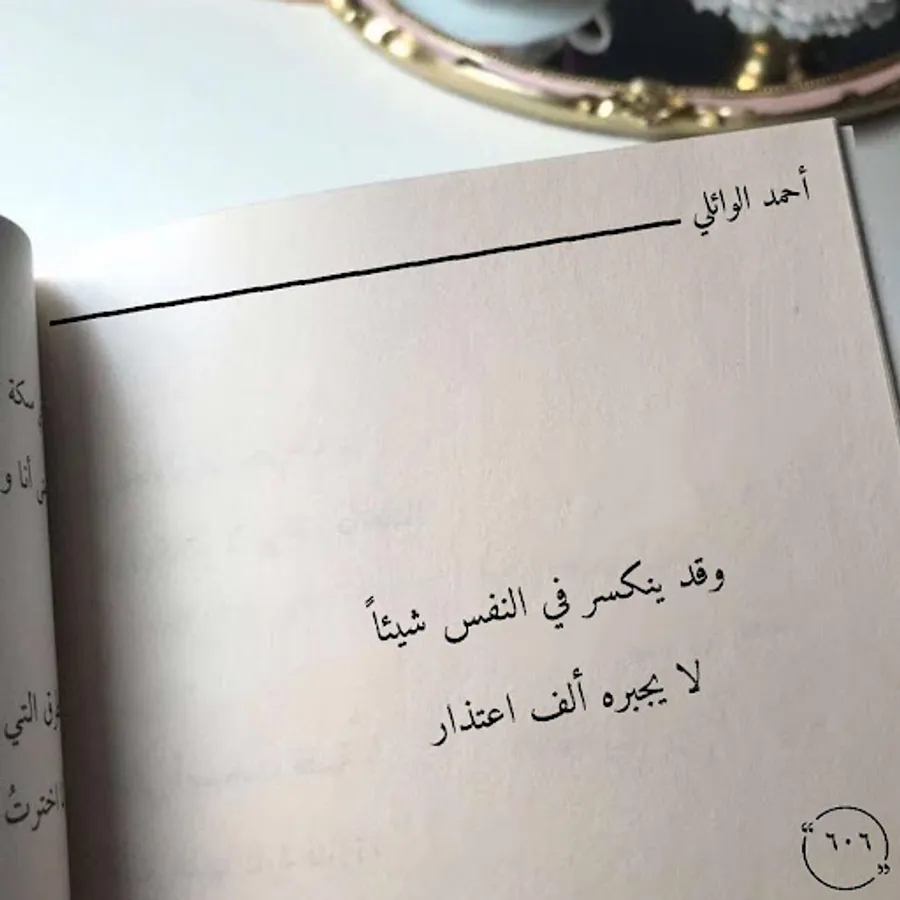 أحمد الوائلي
وقد ينكسر في النفس شيئاً
لا يجبره ألف اعتذار
“ ٦٠٦ ”
سكة
أنا و
التي
اخترتُ